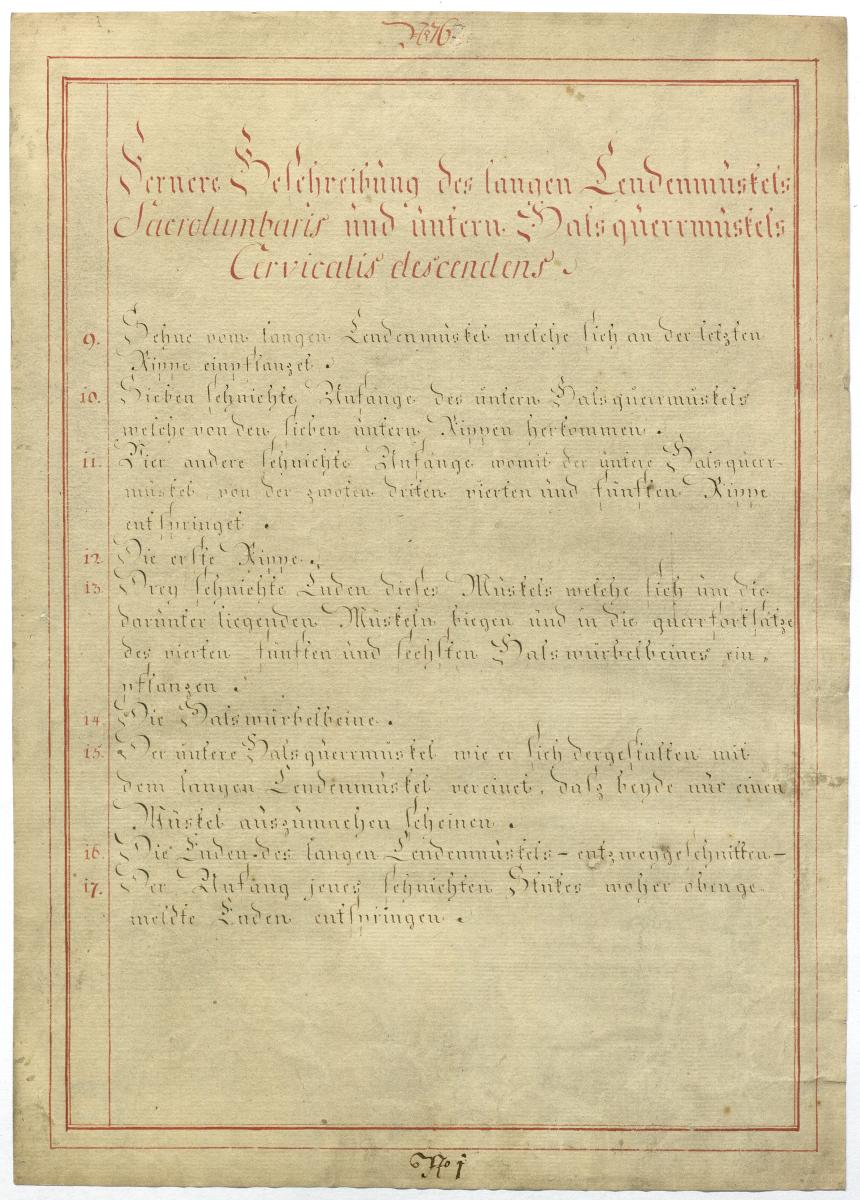 Fernere Beschreibung des langen Lendenmüskels
Sacrolumbaris und üntern Halsqüerrmüskels
Cervicalis descendens.
9. Sehne vom langen Lendenmüskel welche sich an der letzten
Rippe einpflanzet.
10. Sieben sehnichte Anfänge des üntern Halsqüerrmüskels
welche von den sieben üntern Rippen herkommen.
11. Vier andere sehnichte Anfänge womit der üntere Halsqüerr-
müskel von der zwoten driten vierten und fünften Rippe
entspringet.
12. Die erste Rippe.
13. Drey sehnichte Enden dieses Müskels welche sich üm die
darünter liegenden Müskeln biegen und in die qüerrfortsätze
des vierten fünften und sechsten Halswürbelbeines ein,
pflanzen.
14. Die Halswürbelbeine.
15. Der üntere Halsqüerrmüskel wie er sich dergestalten mit
dem langen Lendenmüskel vereinet, dasz beyde nür einen
Müskel aüszümachen scheinen.
16. Die Enden des langen Lendenmüskels – entzweygeschnitten –
17. Der Anfang jenes sehnichten Stükes woher obenge-
meldte Enden entspringen.
No 1